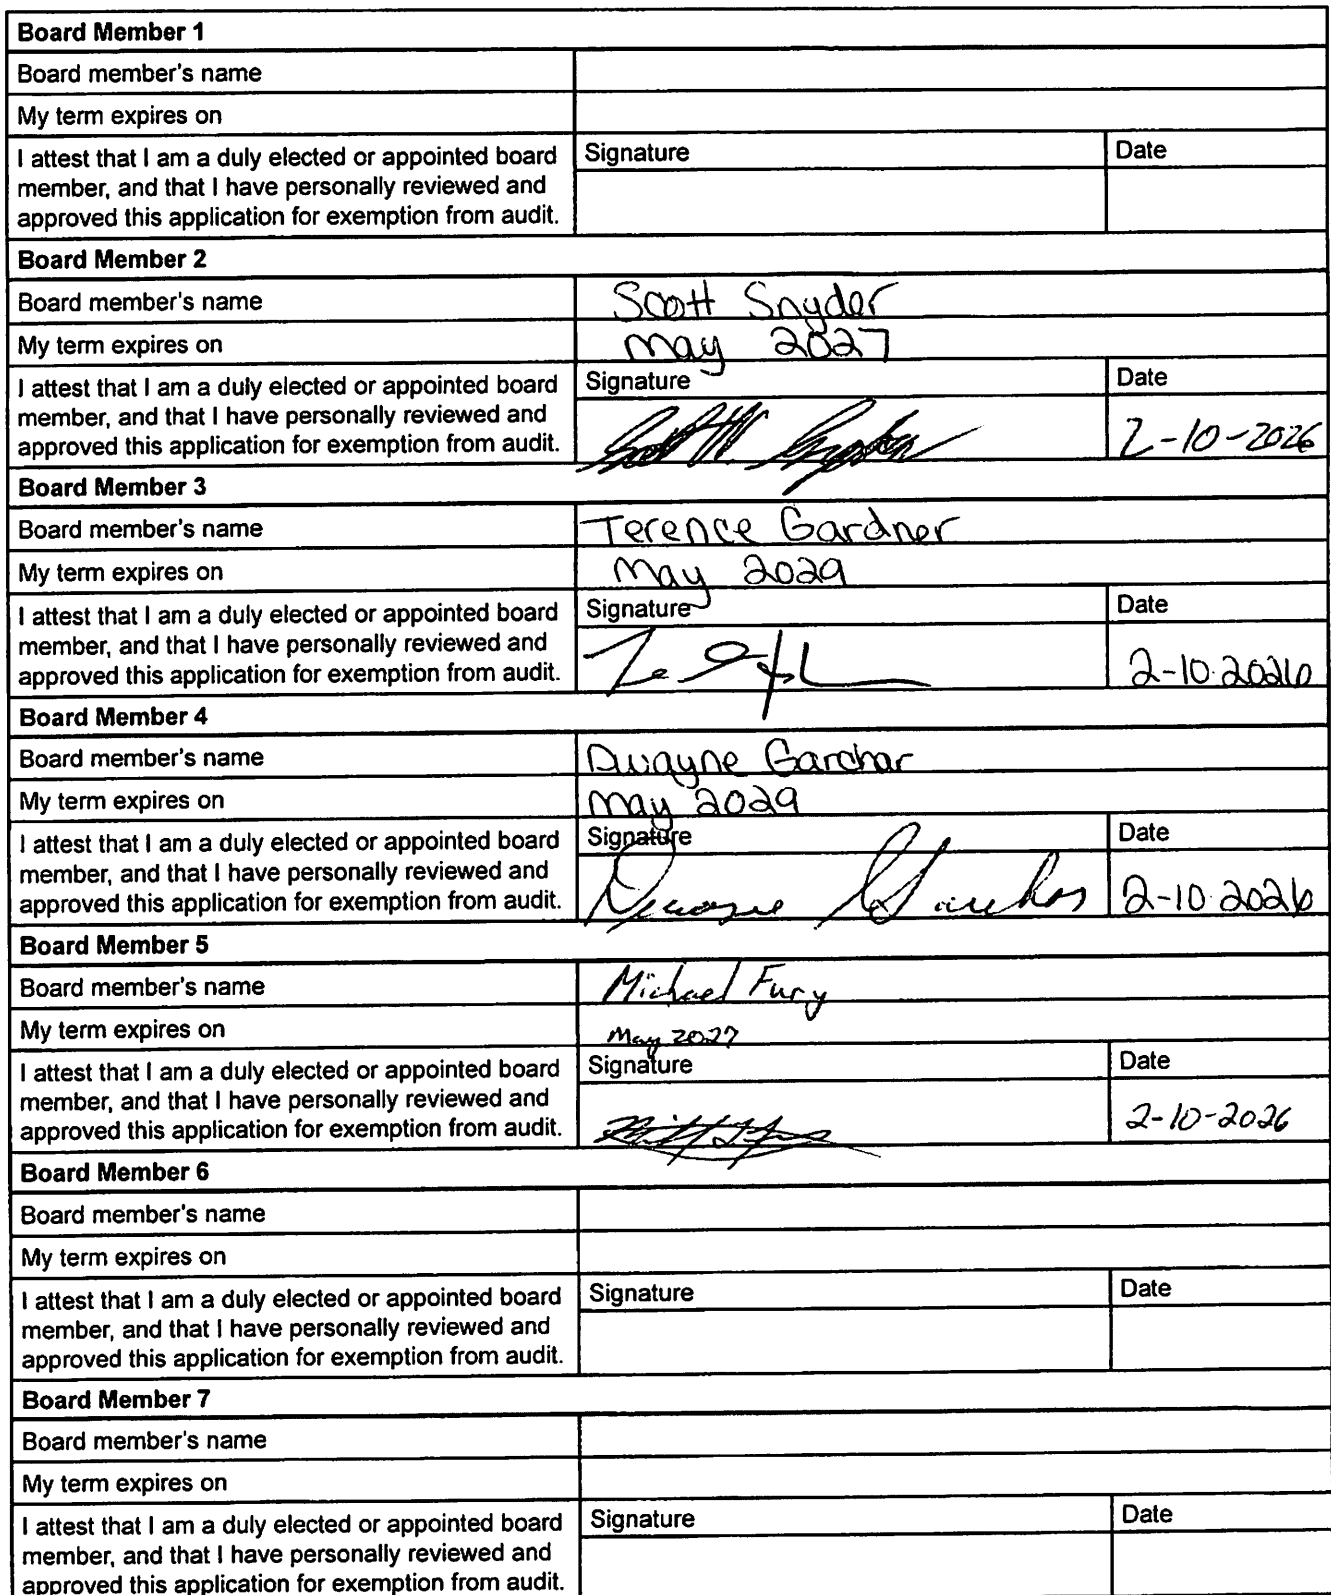 Board Member 1
Board member's name
My term expires on
I attest that I am a duly elected or appointed board
member, and that I have personally reviewed and
approved this application for exemption from audit.
Signature
Date
Board Member 2
Board member's name
Scott Snyder
My term expires on
May 2027
I attest that I am a duly elected or appointed board
member, and that I have personally reviewed and
approved this application for exemption from audit.
Signature
Date
2-10-2026
Board Member 3
Board member's name
Terence Gardner
My term expires on
May 2029
I attest that I am a duly elected or appointed board
member, and that I have personally reviewed and
approved this application for exemption from audit.
Signature
Date
2-10-2026
Board Member 4
Board member's name
Dwayne Garchar
My term expires on
May 2029
I attest that I am a duly elected or appointed board
member, and that I have personally reviewed and
approved this application for exemption from audit.
Signature
Dwayne Garchar
Date
2-10-2026
Board Member 5
Board member's name
Michael Fury
My term expires on
May 2027
I attest that I am a duly elected or appointed board
member, and that I have personally reviewed and
approved this application for exemption from audit.
Signature
Date
2-10-2026
Board Member 6
Board member's name
My term expires on
I attest that I am a duly elected or appointed board
member, and that I have personally reviewed and
approved this application for exemption from audit.
Signature
Date
Board Member 7
Board member's name
My term expires on
I attest that I am a duly elected or appointed board
member, and that I have personally reviewed and
approved this application for exemption from audit.
Signature
Date